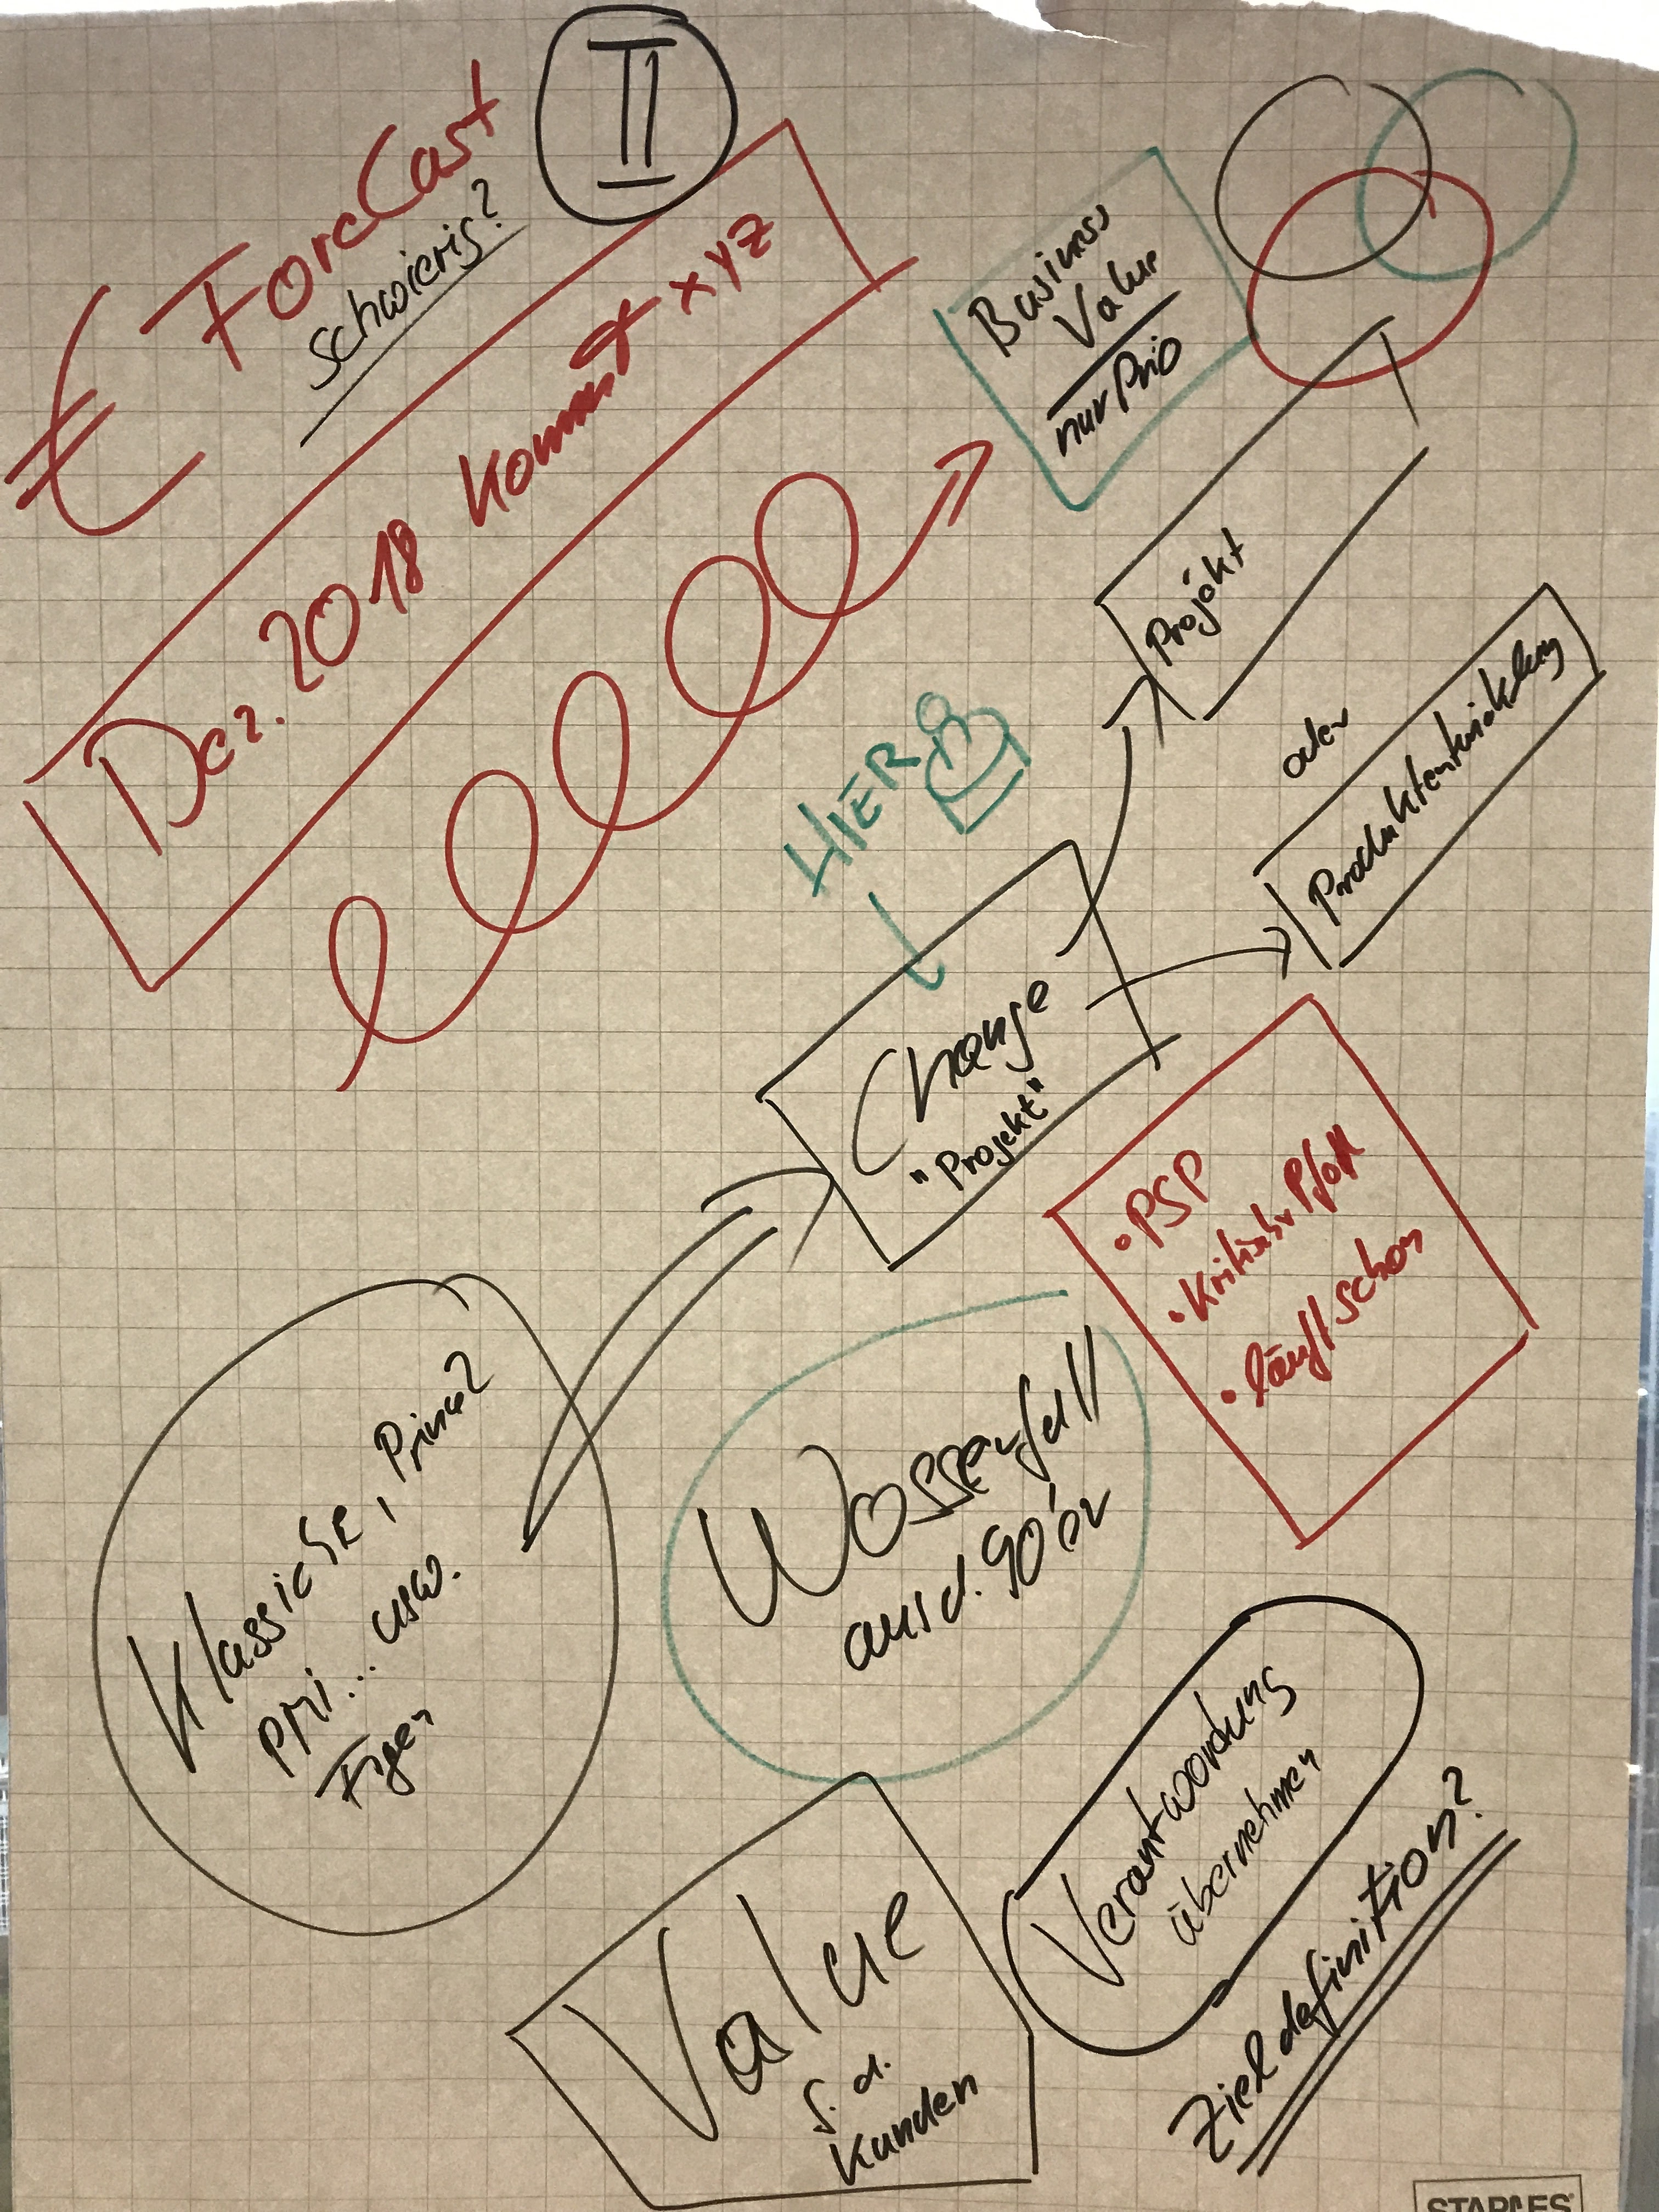 II
€ ForeCast
schwierig?
Dez. 2018 kommt xyz
Business
Value
nur Prio
Projekt
oder
Produktentwicklung
HIER
Change
"Projekt"
• PSP
• Kritischer Pfad
• läuft schon
Klassiche, Prince2
PMI... usw.
Wasserfall
aus d. 90'er
Verantwordung
übernehmen
Zieldefinition?
Value
f. d.
Kunden
STAPLES